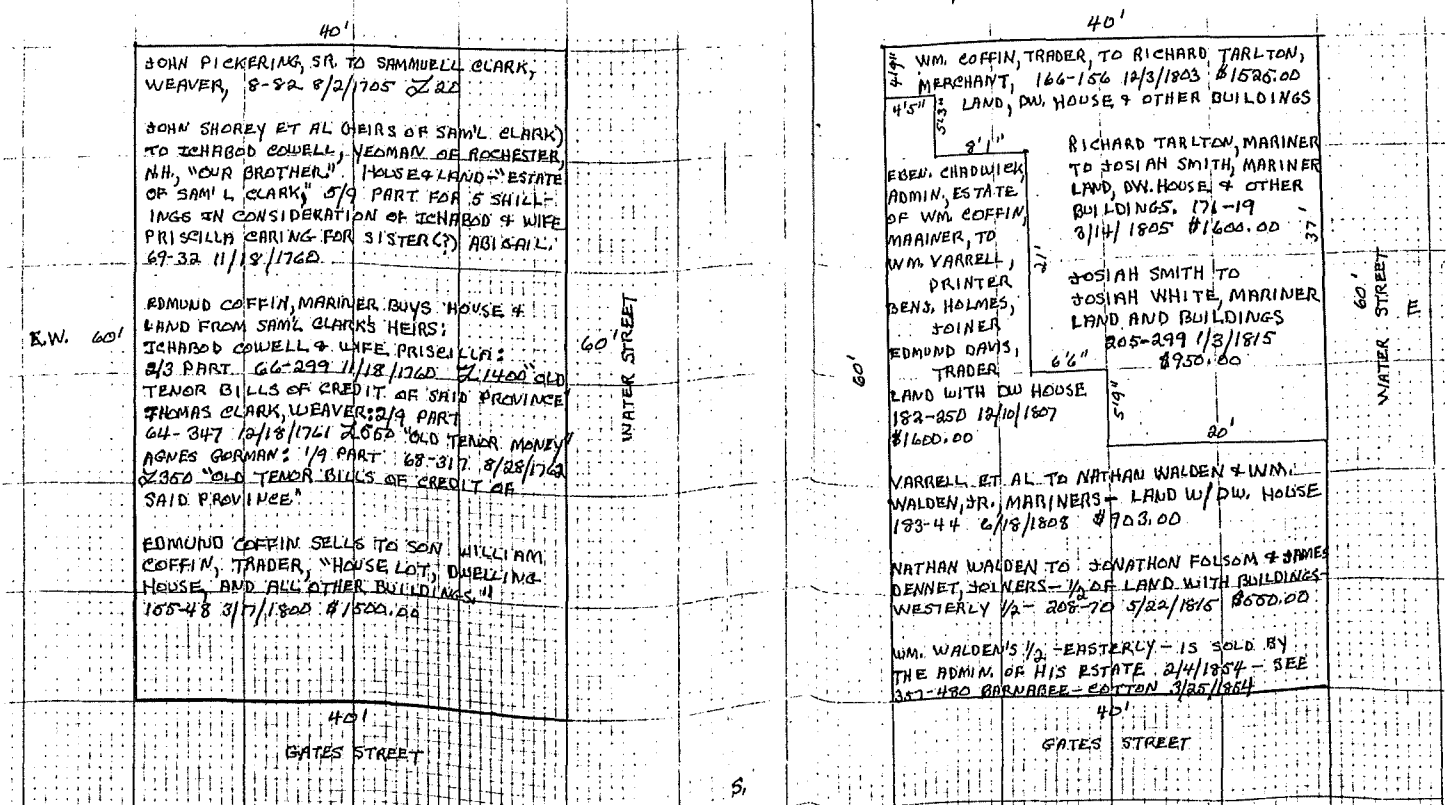 40'
JOHN PICKERING, SR. TO SAMMUELL CLARK,
WEAVER, 8-82 8/2/1705 £20
JOHN SHOREY ET AL (HEIRS OF SAM'L CLARK)
TO ICHABOD COWELL, YEOMAN OF ROCHESTER,
N.H., "OUR BROTHER". HOUSE & LAND-"ESTATE
OF SAM'L CLARK," 5/9 PART FOR 5 SHILL-
INGS IN CONSIDERATION OF ICHABOD & WIFE
PRISCILLA CARING FOR SISTER(?) ABIGAIL.
69-32 11/18/1760
EDMUND COFFIN, MARINER BUYS HOUSE &
LAND FROM SAM'L CLARK'S HEIRS:
ICHABOD COWELL & WIFE PRISCILLA:
2/3 PART 66-299 11/18/1760 £1400 "OLD
TENOR BILLS OF CREDIT OF SAID PROVINCE"
THOMAS CLARK, WEAVER: 2/9 PART
64-347 12/18/1761 £550 "OLD TENOR MONEY"
AGNES GORMAN: 1/9 PART 68-317 8/28/1762
£350 "OLD TENOR BILLS OF CREDIT OF
SAID PROVINCE"
EDMUND COFFIN SELLS TO SON WILLIAM
COFFIN, TRADER, "HOUSE LOT, DWELLING
HOUSE, AND ALL OTHER BUILDINGS."
155-48 3/7/1800 $1500.00
W. 60'
60'
WATER STREET
40'
GATES STREET
S.
40'
4'9"
WM. COFFIN, TRADER, TO RICHARD TARLTON,
MERCHANT, 166-156 12/3/1803 $1525.00
LAND, DW. HOUSE & OTHER BUILDINGS
4'5"
5'3"
8'1"
RICHARD TARLTON, MARINER
TO JOSIAH SMITH, MARINER
LAND, DW. HOUSE & OTHER
BUILDINGS. 171-19
3/14/1805 $1600.00
37'
JOSIAH SMITH TO
JOSIAH WHITE, MARINER
LAND AND BUILDINGS
205-299 1/3/1815
$950.00
EBEN. CHADWICK,
ADMIN, ESTATE
OF WM. COFFIN,
MARINER, TO
WM. VARRELL,
PRINTER
BENJ. HOLMES,
JOINER
EDMUND DAVIS,
TRADER
LAND WITH DW HOUSE
182-250 12/10/1807
$1600.00
21'
6'6"
5'9"
20'
60'
60'
WATER STREET
E
VARRELL ET AL TO NATHAN WALDEN & WM.
WALDEN, JR., MARINERS - LAND W/DW. HOUSE
183-44 6/18/1808 $903.00
NATHAN WALDEN TO JONATHON FOLSOM & JAMES
DENNET, JOINERS - 1/2 OF LAND WITH BUILDINGS-
WESTERLY 1/2 - 208-70 5/22/1815 $550.00
WM. WALDEN'S 1/2 - EASTERLY - IS SOLD BY
THE ADMIN. OF HIS ESTATE 2/4/1854 - SEE
357-480 BARNABEE-COTTON 3/25/1854
40'
GATES STREET